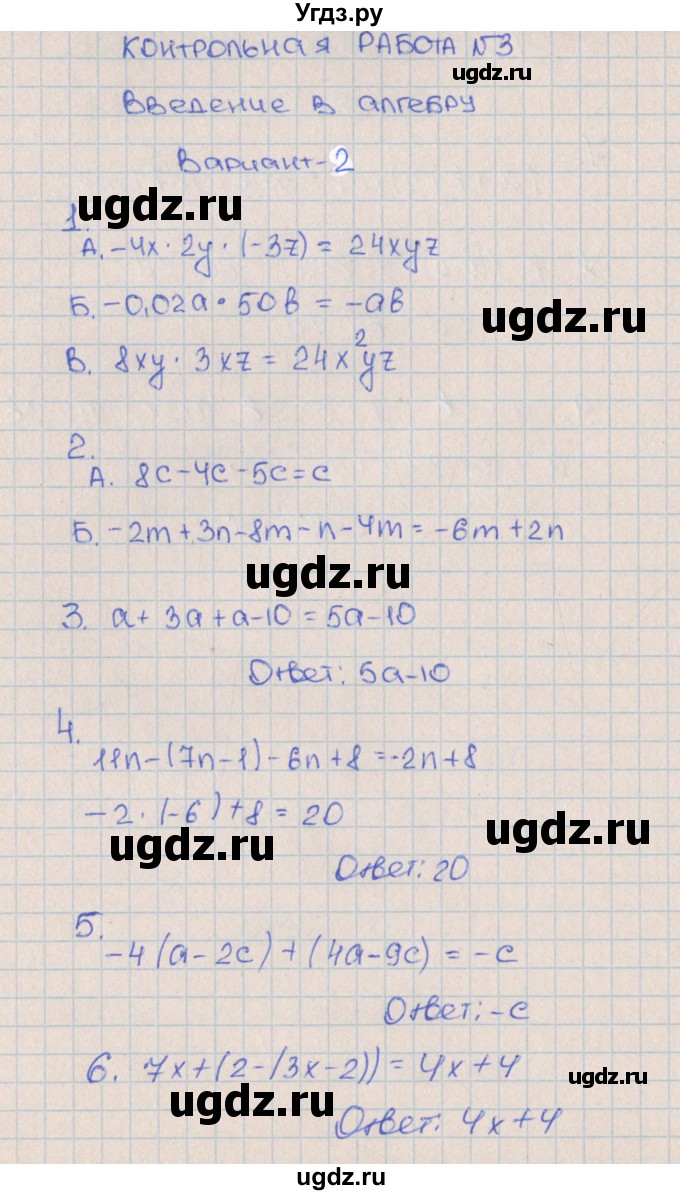 Угдз.ру
КОНТРОЛЬНАЯ РАБОТА №3
ugdz.ru
Введение в алгебру
Вариант-2
ugdz.ru
1.
А. -4x · 2y · (-3z) = 24xyz
Б. -0,02a · 50b = -ab
ugdz.ru
В. 8xy · 3xz = 24x²yz
2.
А. 8c-4c-5c=c
Б. -2m+3n-8m-n-4m=-6m+2n
ugdz.ru
3. a+3a+a-10=5a-10
Ответ: 5a-10
4.
11n-(7n-1)-6n+8=-2n+8
-2·(-6)+8=20
ugdz.ru
ugdz.ru
Ответ: 20
5.
-4(a-2c)+(4a-9c)=-c
Ответ: -c
6. 7x+(2-(3x-2))=4x+4
ugdz.ru
ugdz.ru
Ответ: 4x+4
ugdz.ru